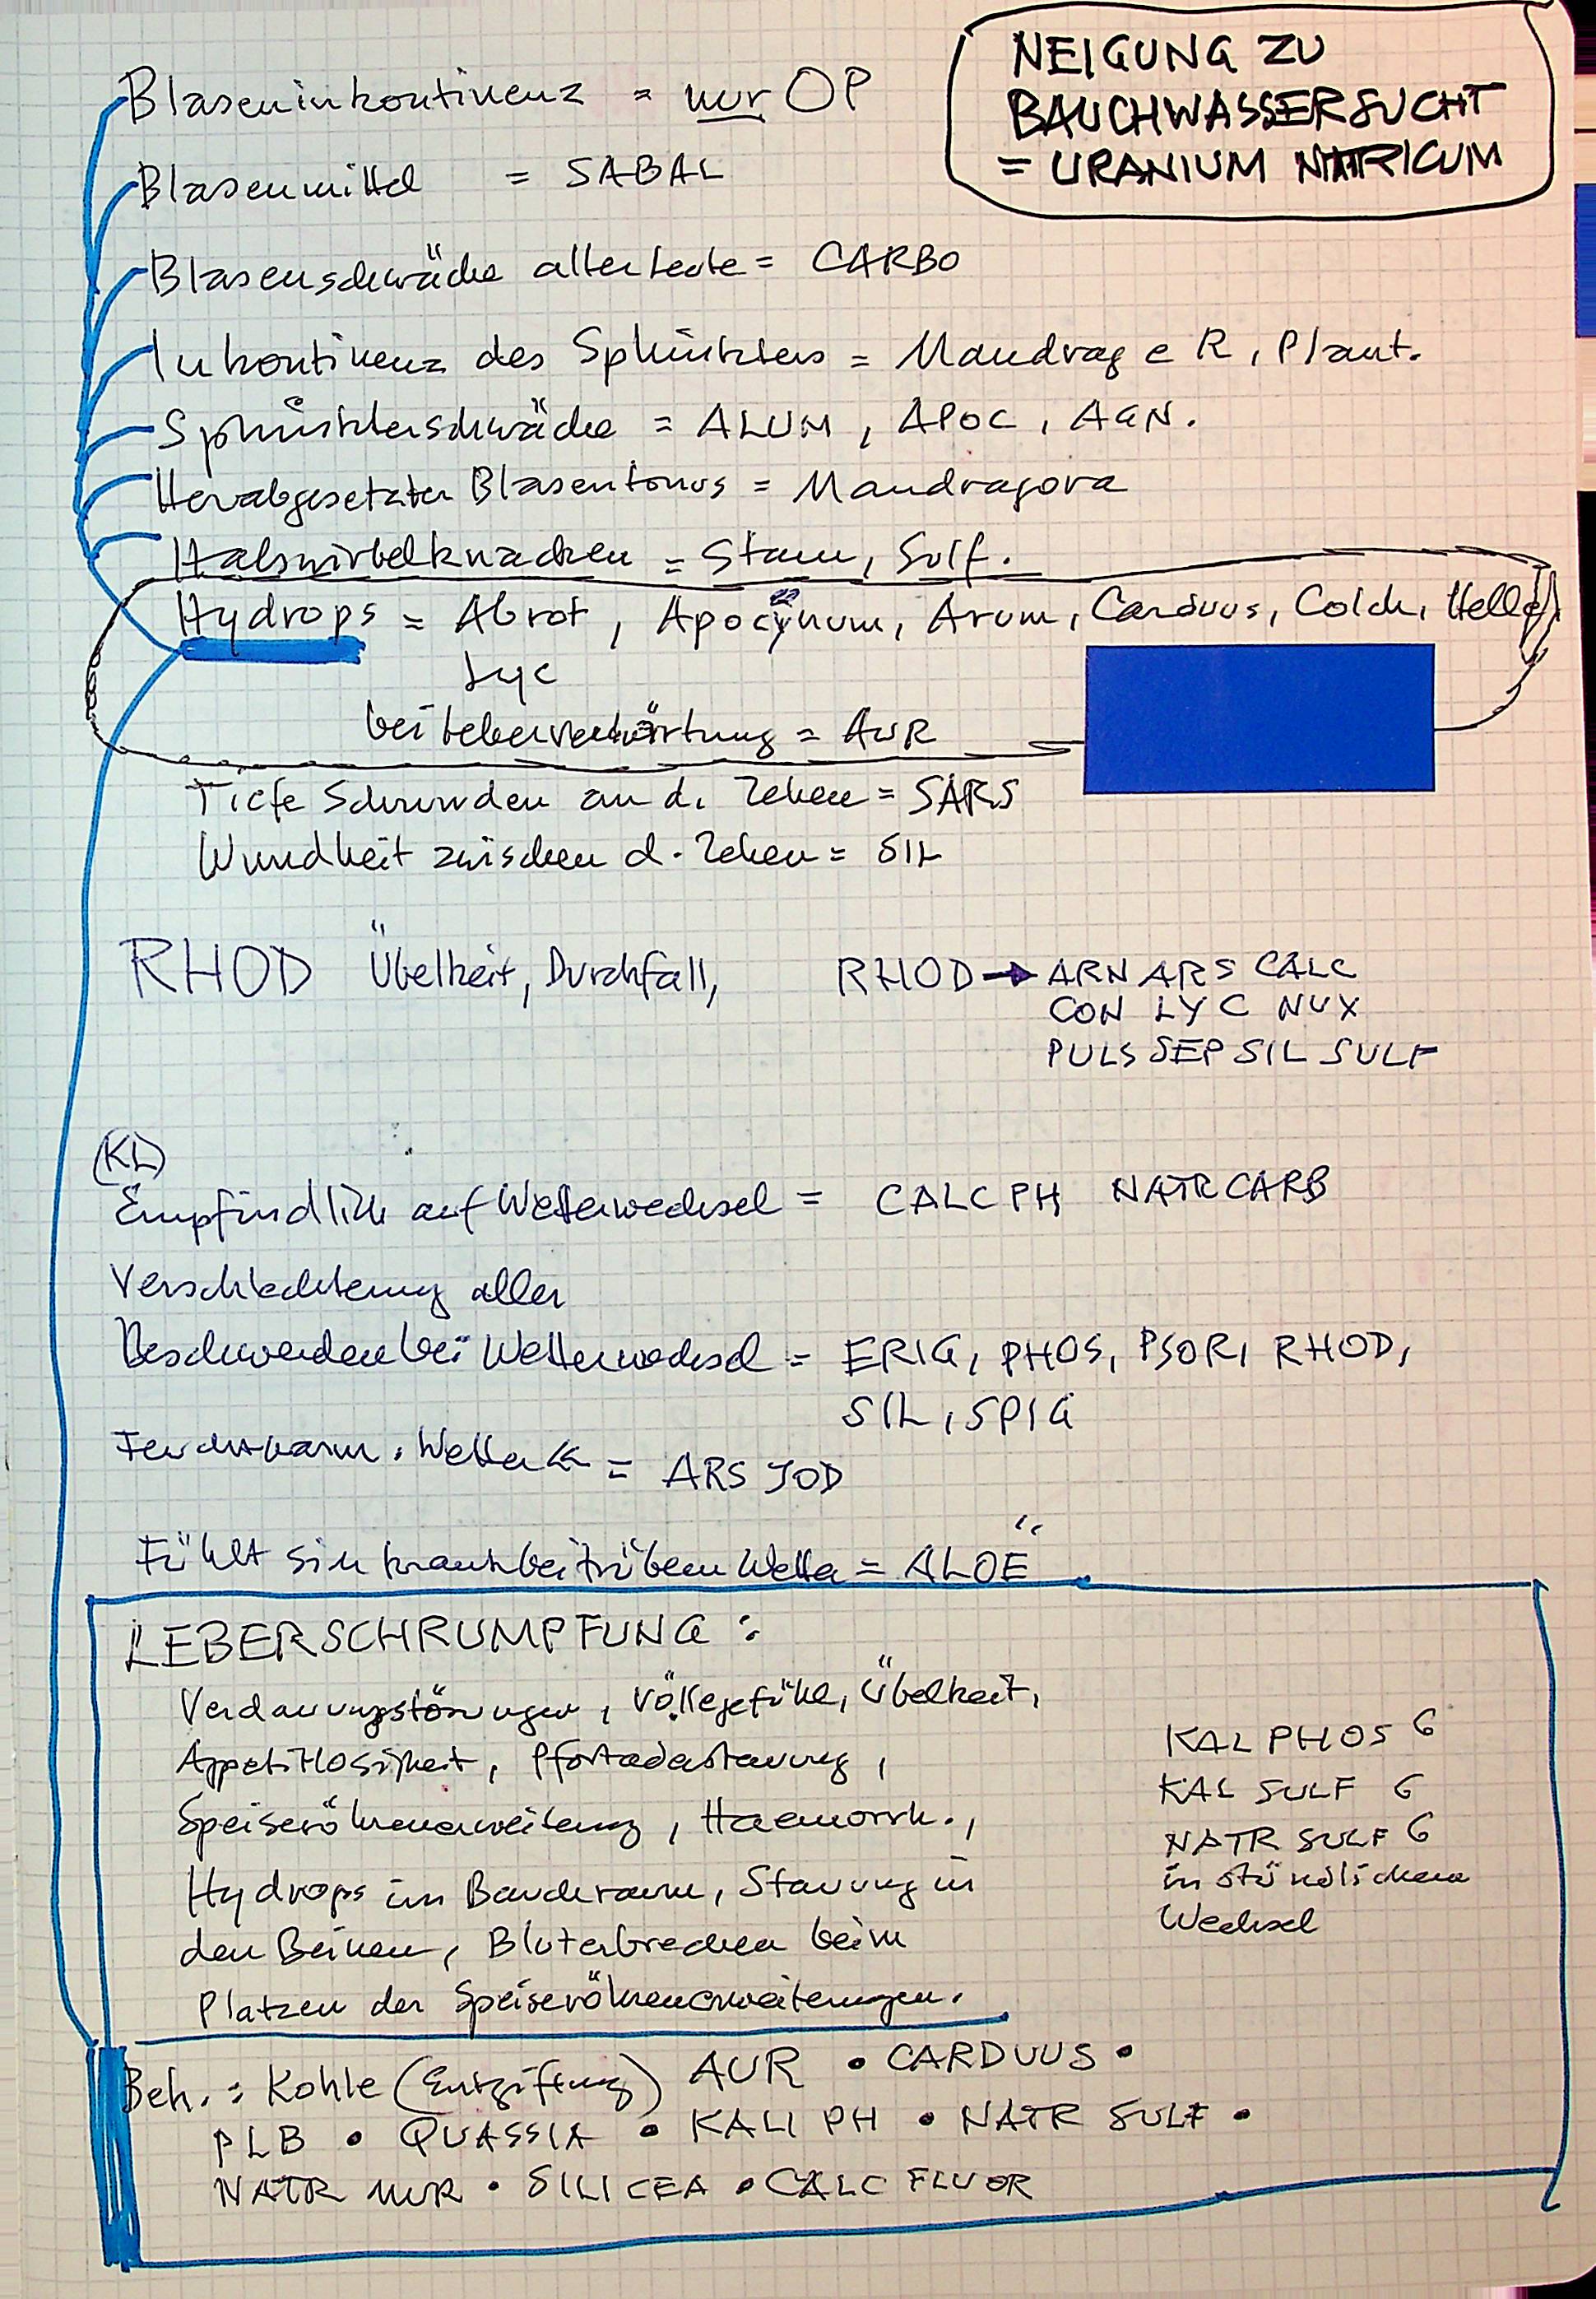 NEIGUNG ZU
BAUCHWASSERSUCHT
= URANIUM NATRICUM
Blaseninkontinenz = nur OP
Blasenmittel = SABAL
Blasenschwäche alter Leute = CARBO
Inkontinenz des Sphinkters = Mandrag e R, Plant.
Sphinkterschwäche = ALUM, APOC, AGN.
Herabgesetzter Blasentonus = Mandragora
Halswirbelknacken = Stann, Sulf.
Hydrops = Abrot, Apocynum, Arum, Carduus, Colch, Helleb
Lyc
bei Leberverhärtung = AUR
Tiefe Schrunden an d. Zehen = SARS
Wundheit zwischen d. Zehen = SIL
RHOD Übelkeit, Durchfall,
RHOD → ARN ARS CALC
CON LYC NUX
PULS SEP SIL SULF
(KL)
Empfindlich auf Wetterwechsel = CALC PH NATR CARB
Verschlechterung aller
Beschwerden bei Wetterwechsel = ERIG, PHOS, PSOR, RHOD,
SIL, SPIG
Feuchtwarm. Wetter << = ARS JOD
Fühlt sich krank bei trübem Wetter = ALOE
LEBERSCHRUMPFUNG :
Verdauungstörungen, Völlegefühl, Übelkeit,
Appetitlosigkeit, Pfortaderstauung,
Speiseröhrenerweiterung, Haemorrh.,
Hydrops im Bauchraum, Stauung in
den Beinen, Bluterbrechen beim
Platzen der Speiseröhrenerweiterungen.
KAL PHOS 6
KAL SULF 6
NATR SULF 6
in stündlichem
Wechsel
Beh. : Kohle (Entgiftung) AUR • CARDUUS •
PLB • QUASSIA • KALI PH • NATR SULF •
NATR MUR • SILICEA • CALC FLUOR